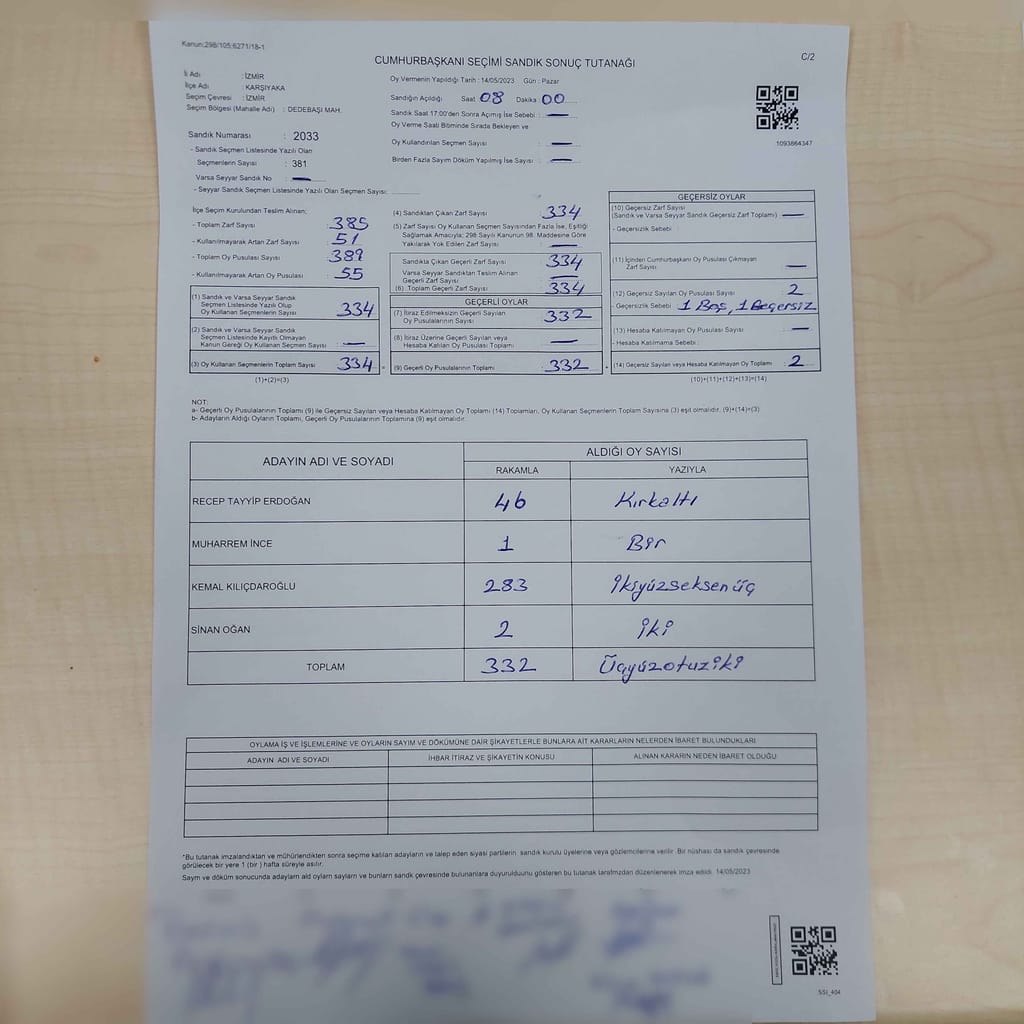 Kanun:298/105;6271/18-1
CUMHURBAŞKANI SEÇİMİ SANDIK SONUÇ TUTANAĞI
C/2
İl Adı : İZMİR
İlçe Adı : KARŞIYAKA
Seçim Çevresi : İZMİR
Seçim Bölgesi (Mahalle Adı) : DEDEBAŞI MAH.
Oy Vermenin Yapıldığı Tarih : 14/05/2023 Gün : Pazar
Sandığın Açıldığı Saat 08 Dakika 00
Sandık Saat 17:00'den Sonra Açımış İse Sebebi : —
Oy Verme Saati Bitiminde Sırada Bekleyen ve
Oy Kullandırılan Seçmen Sayısı : —
Birden Fazla Sayım Döküm Yapılmış İse Sayısı : —
1093864347
Sandık Numarası : 2033
- Sandık Seçmen Listesinde Yazılı Olan
Seçmenlerin Sayısı : 381
Varsa Seyyar Sandık No : —
- Seyyar Sandık Seçmen Listesinde Yazılı Olan Seçmen Sayısı:
İlçe Seçim Kurulundan Teslim Alınan:
- Toplam Zarf Sayısı : 385
- Kullanılmayarak Artan Zarf Sayısı : 51
- Toplam Oy Pusulası Sayısı : 389
- Kullanılmayarak Artan Oy Pusulası : 55
(1) Sandık ve Varsa Seyyar Sandık
Seçmen Listesinde Yazılı Olup
Oy Kullanan Seçmenlerin Sayısı : 334
(2) Sandık ve Varsa Seyyar Sandık
Seçmen Listesinde Kayıtlı Olmayan
Kanun Gereği Oy Kullanan Seçmen Sayısı : —
(3) Oy Kullanan Seçmenlerin Toplam Sayısı : 334
(1)+(2)=(3)
(4) Sandıktan Çıkan Zarf Sayısı : 334
(5) Zarf Sayısı Oy Kullanan Seçmen Sayısından Fazla İse, Eşitliği
Sağlamak Amacıyla; 298 Sayılı Kanunun 98. Maddesine Göre
Yakılarak Yok Edilen Zarf Sayısı : —
Sandıkta Çıkan Geçerli Zarf Sayısı : 334
Varsa Seyyar Sandıktan Teslim Alınan
Geçerli Zarf Sayısı : —
(6) Toplam Geçerli Zarf Sayısı : 334
GEÇERLİ OYLAR
(7) İtiraz Edilmeksizin Geçerli Sayılan
Oy Pusulalarının Sayısı : 332
(8) İtiraz Üzerine Geçerli Sayılan veya
Hesaba Katılan Oy Pusulası Toplamı : —
(9) Geçerli Oy Pusulalarının Toplamı : 332
GEÇERSİZ OYLAR
(10) Geçersiz Zarf Sayısı
(Sandık ve Varsa Seyyar Sandık Geçersiz Zarf Toplamı) : —
- Geçersizlik Sebebi :
(11) İçinden Cumhurbaşkanı Oy Pusulası Çıkmayan
Zarf Sayısı : —
(12) Geçersiz Sayılan Oy Pusulası Sayısı : 2
- Geçersizlik Sebebi : 1 Boş, 1 Geçersiz
(13) Hesaba Katılmayan Oy Pusulası Sayısı : —
- Hesaba Katılmama Sebebi :
(14) Geçersiz Sayılan veya Hesaba Katılmayan Oy Toplamı : 2
(10)+(11)+(12)+(13)=(14)
NOT:
a- Geçerli Oy Pusulalarının Toplamı (9) ile Geçersiz Sayılan veya Hesaba Katılmayan Oy Toplamı (14) Toplamları, Oy Kullanan Seçmenlerin Toplam Sayısına (3) eşit olmalıdır. (9)+(14)=(3)
b- Adayların Aldığı Oyların Toplamı, Geçerli Oy Pusulalarının Toplamına (9) eşit olmalıdır.
ADAYIN ADI VE SOYADI ALDIĞI OY SAYISI
RAKAMLA YAZIYLA
RECEP TAYYİP ERDOĞAN 46 Kırkaltı
MUHARREM İNCE 1 Bir
KEMAL KILIÇDAROĞLU 283 İkiyüzseksenüç
SİNAN OĞAN 2 İki
TOPLAM 332 Üçyüzotuziki
OYLAMA İŞ VE İŞLEMLERİNE VE OYLARIN SAYIM VE DÖKÜMÜNE DAİR ŞİKAYETLERLE BUNLARA AİT KARARLARIN NELERDEN İBARET BULUNDUKLARI
ADAYIN ADI VE SOYADI İHBAR İTİRAZ VE ŞİKAYETİN KONUSU ALINAN KARARIN NEDEN İBARET OLDUĞU
*Bu tutanak imzalandıktan ve mühürlendikten sonra seçime katılan adayların ve talep eden siyasi partilerin sandık kurulu üyelerine veya gözlemcilerine verilir. Bir nüshası da sandık çevresinde
görülecek bir yere 1 (bir) hafta süreyle asılır.
Sayım ve döküm sonucunda adayların aldı oyların sayıları ve bunların sandık çevresinde bulunanlara duyurulduğunu gösteren bu tutanak tarafımızdan düzenlenerek imza edildi. 14/05/2023
SSI_404